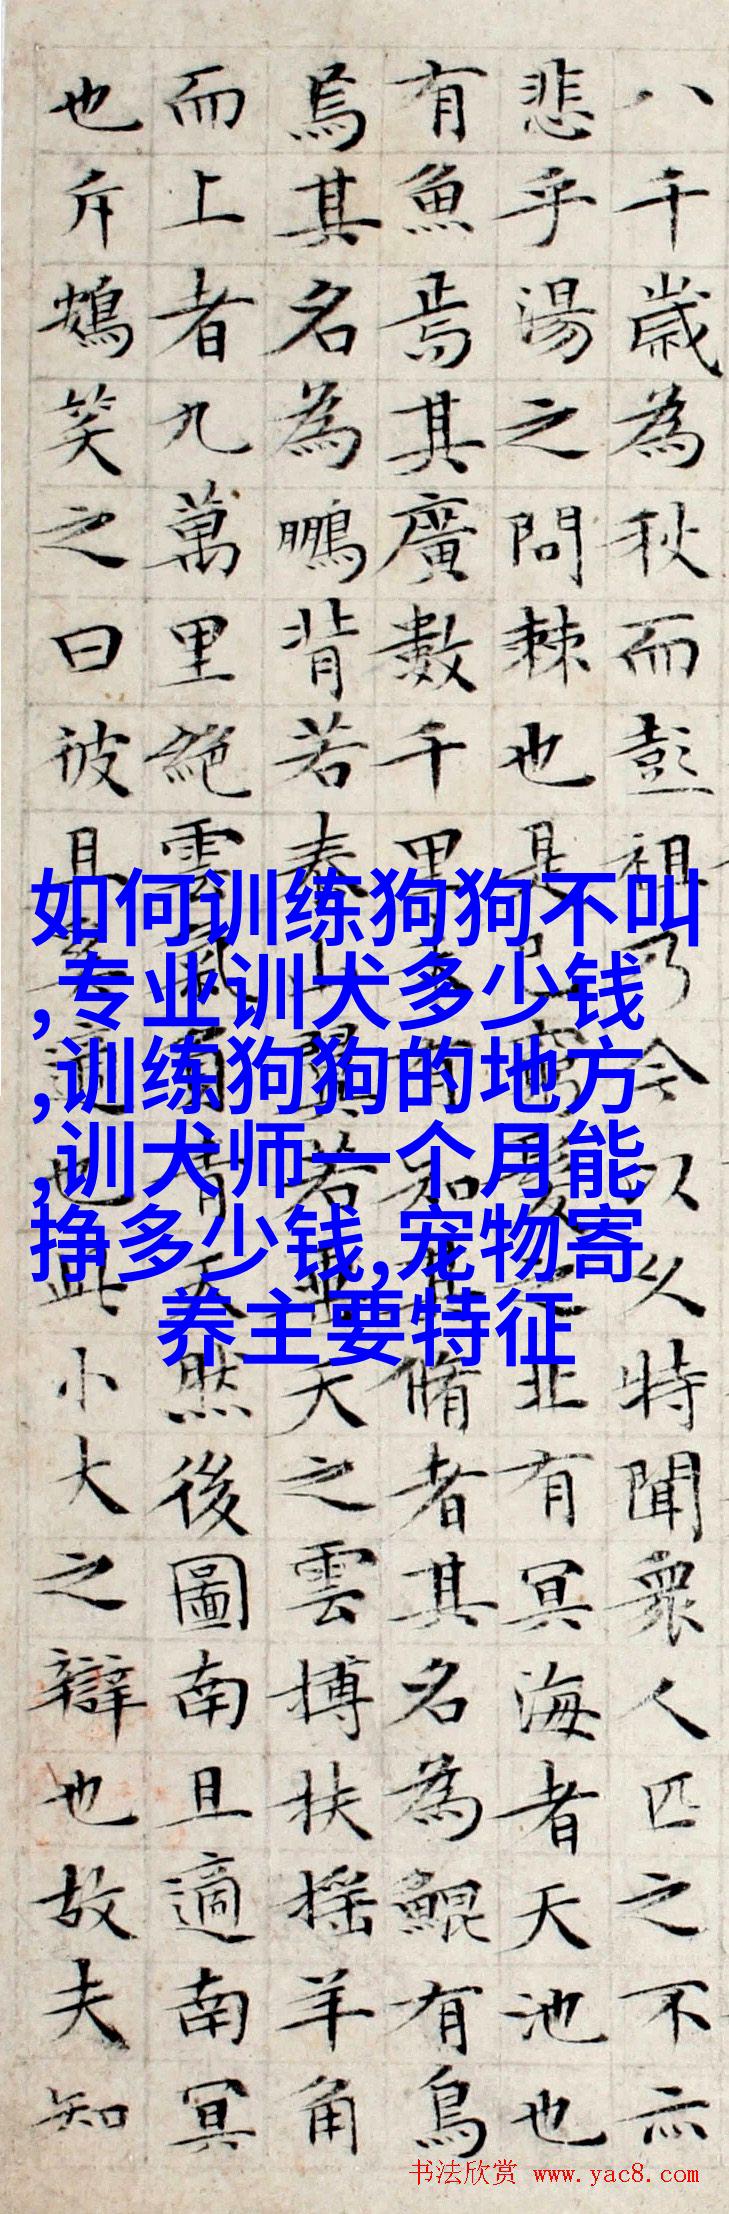 八千歲為秋而彭祖乃今以久特聞衆人匹之不亦
悲乎湯之問棘也是已窮髮之北有冥海者天池也
有魚焉其廣數千里未有知其脩者其名為鯤有鳥
焉其名為鵬背若泰山翼若垂天之雲搏扶摇羊角
而上者九萬里絕雲氣負青天然後圖南且適南冥
也斥鴳笑之曰彼且奚適也此小大之辯也故夫知
如何训练狗狗不叫
,专业训犬多少钱
,训练狗狗的地方
,训犬师一个月能
挣多少钱,宠物寄
养主要特征
书法欣赏 www.yac8.com